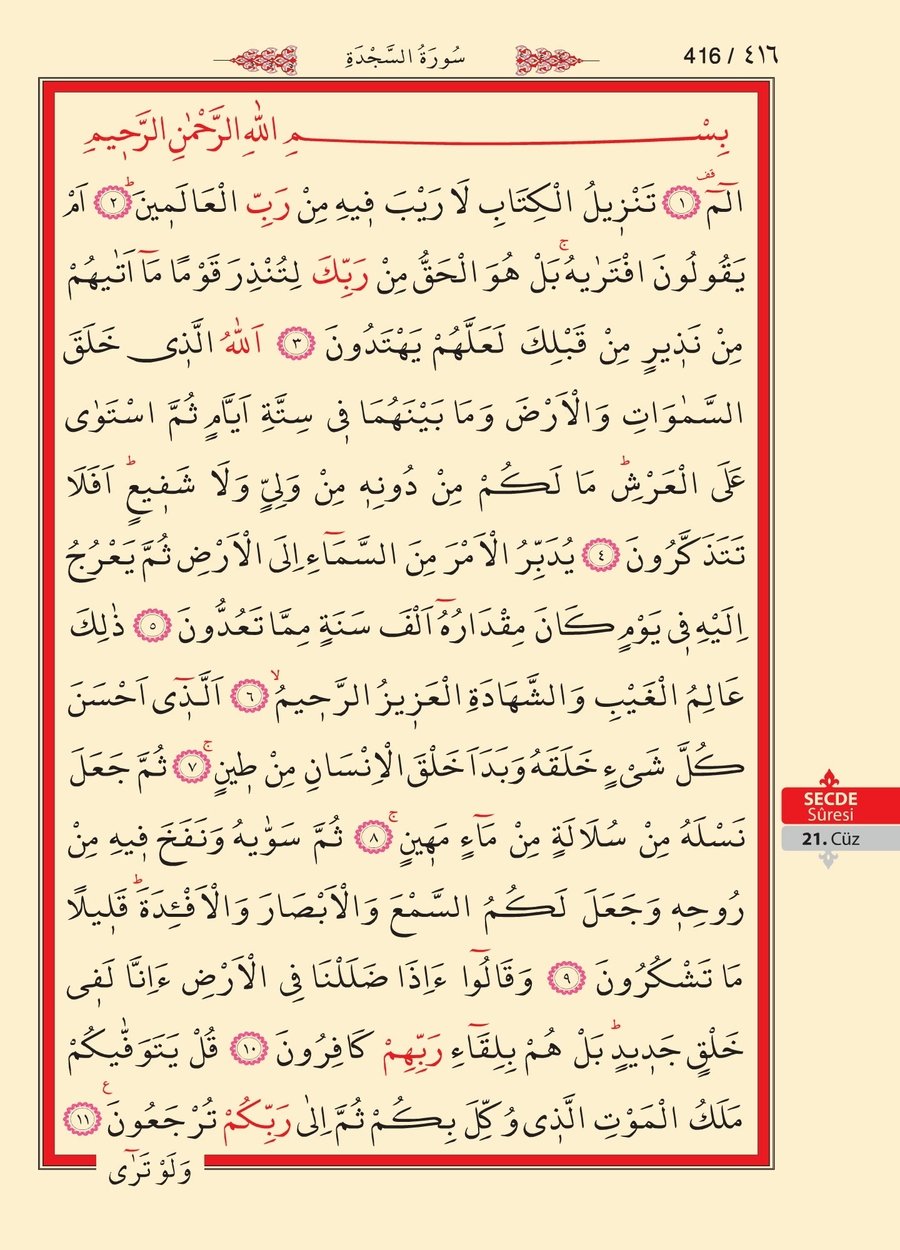 سُورَةُ السَّجْدَةِ
416 / ٤١٦
بِسْمِ اللّٰهِ الرَّحْمٰنِ الرَّحٖيمِ
الٓمٓ ۠ڨف ﴿١﴾ تَنْزٖيلُ الْكِتَابِ لَا رَيْبَ فٖيهِ مِنْ رَبِّ الْعَالَمٖينَؕ ﴿٢﴾ اَمْ
يَقُولُونَ افْتَرٰيهُۚ بَلْ هُوَ الْحَقُّ مِنْ رَبِّكَ لِتُنْذِرَ قَوْمًا مَٓا اَتٰيهُمْ
مِنْ نَذٖيرٍ مِنْ قَبْلِكَ لَعَلَّهُمْ يَهْتَدُونَ ﴿٣﴾ اَللّٰهُ الَّذٖى خَلَقَ
السَّمٰوَاتِ وَالْاَرْضَ وَمَا بَيْنَهُمَا فٖى سِتَّةِ اَيَّامٍ ثُمَّ اسْتَوٰى
عَلَى الْعَرْشِؕ مَا لَكُمْ مِنْ دُونِهٖ مِنْ وَلِىٍّ وَلَا شَفٖيعٍؕ اَفَلَا
تَتَذَكَّرُونَ ﴿٤﴾ يُدَبِّرُ الْاَمْرَ مِنَ السَّمَٓاءِ اِلَى الْاَرْضِ ثُمَّ يَعْرُجُ
اِلَيْهِ فٖى يَوْمٍ كَانَ مِقْدَارُهُٓ اَلْفَ سَنَةٍ مِمَّا تَعُدُّونَ ﴿٥﴾ ذٰلِكَ
عَالِمُ الْغَيْبِ وَالشَّهَادَةِ الْعَزٖيزُ الرَّحٖيمُۙ ﴿٦﴾ اَلَّذٖٓى اَحْسَنَ
كُلَّ شَىْءٍ خَلَقَهُ وَبَدَاَ خَلْقَ الْاِنْسَانِ مِنْ طٖينٍۚ ﴿٧﴾ ثُمَّ جَعَلَ
نَسْلَهُ مِنْ سُلَالَةٍ مِنْ مَٓاءٍ مَهٖينٍۚ ﴿٨﴾ ثُمَّ سَوّٰيهُ وَنَفَخَ فٖيهِ مِنْ
رُوحِهٖ وَجَعَلَ لَكُمُ السَّمْعَ وَالْاَبْصَارَ وَالْاَفْـِٔدَةَؕ قَلٖيلًا
مَا تَشْكُرُونَ ﴿٩﴾ وَقَالُٓوا ءَاِذَا ضَلَلْنَا فِى الْاَرْضِ ءَاِنَّا لَفٖى
خَلْقٍ جَدٖيدٍؕ بَلْ هُمْ بِلِقَٓاءِ رَبِّهِمْ كَافِرُونَ ﴿١٠﴾ قُلْ يَتَوَفّٰيكُمْ
مَلَكُ الْمَوْتِ الَّذٖى وُكِّلَ بِكُمْ ثُمَّ اِلٰى رَبِّكُمْ تُرْجَعُونَ ع ﴿١١﴾
وَلَوْ تَرٰٓى
SECDE
Sûresi
21. Cüz